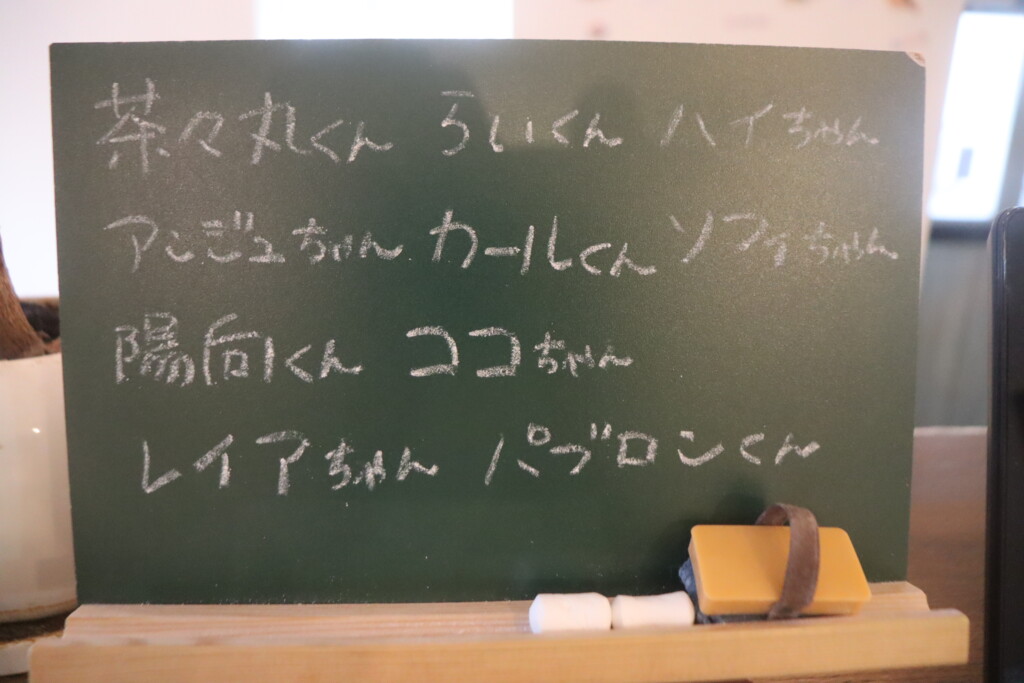 茶々丸くん らいくん ハイちゃん
アンジュちゃん カールくん ソフィちゃん
陽向くん ココちゃん
レイアちゃん パブロンくん